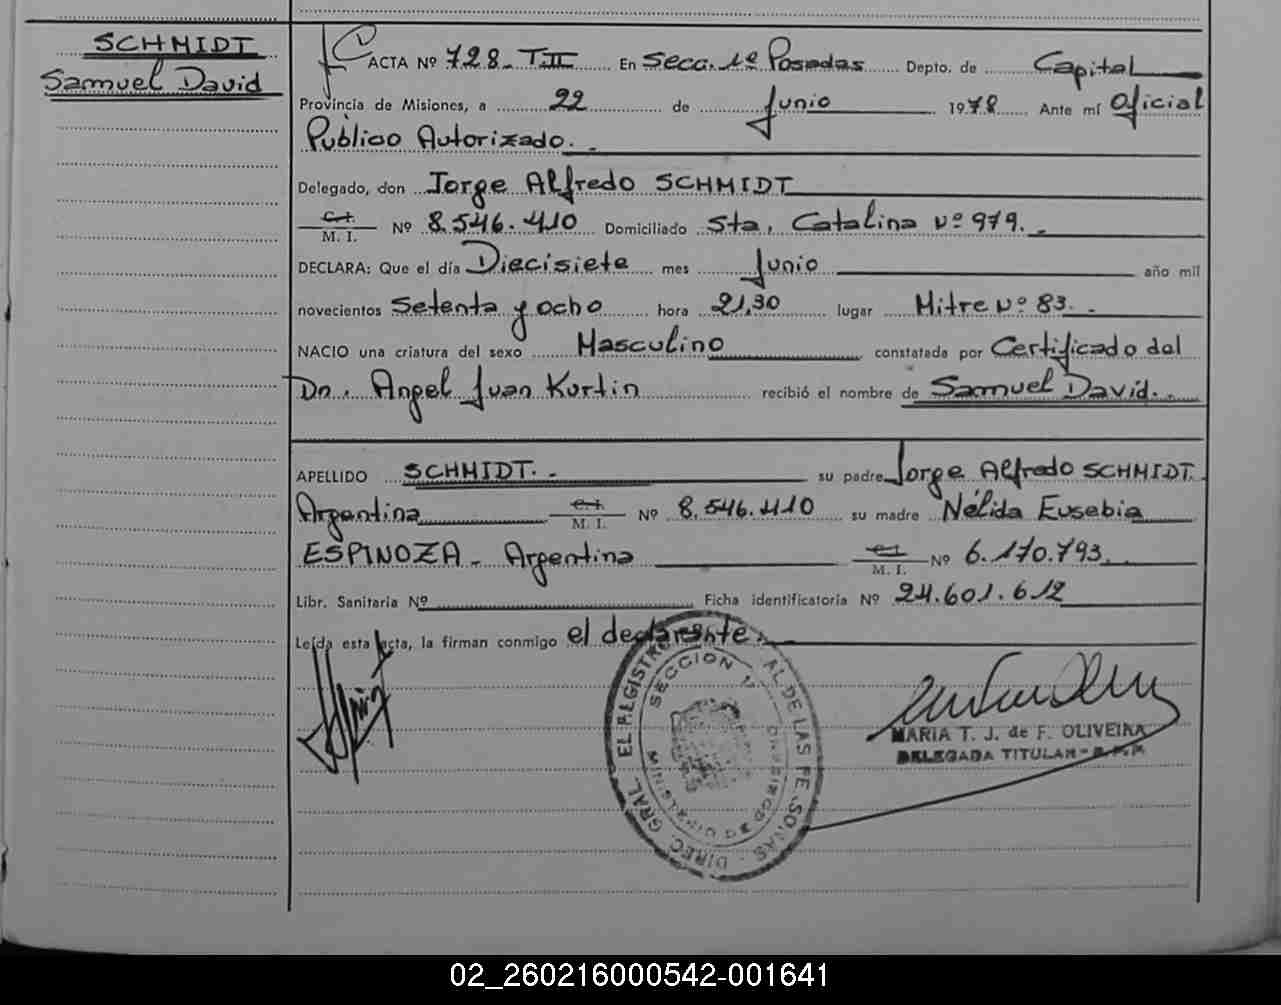 SCHMIDT
Samuel David
ACTA Nº 728. T.II En Secc. 1ª Posadas Depto. de Capital
Provincia de Misiones, a 22 de Junio 1978 Ante mí Oficial
Público Autorizado.
Delegado, don Jorge Alfredo SCHMIDT
C.I. M. I. Nº 8.546.410 Domiciliado Sta. Catalina Nº 979.
DECLARA: Que el día Diecisiete mes Junio año mil
novecientos Setenta y ocho hora 21,30 lugar Mitre Nº 83.
NACIO una criatura del sexo Masculino constatada por Certificado del
Dr. Angel Juan Kurtin recibió el nombre de Samuel David.
APELLIDO SCHMIDT. su padre Jorge Alfredo SCHMIDT.
Argentina C.I. M. I. Nº 8.546.410 su madre Nélida Eusebia
ESPINOZA. Argentina C.I. M. I. Nº 6.170.793.
Libr. Sanitaria Nº Ficha identificatoria Nº 24.601.612
Leída esta acta, la firman conmigo el declarante.
DIREC. GRAL. EL REGISTRO AL DE LAS PERSONAS
SECCION 1ª
MARIA T. J. de F. OLIVEIRA
DELEGADA TITULAR
02_260216000542-001641